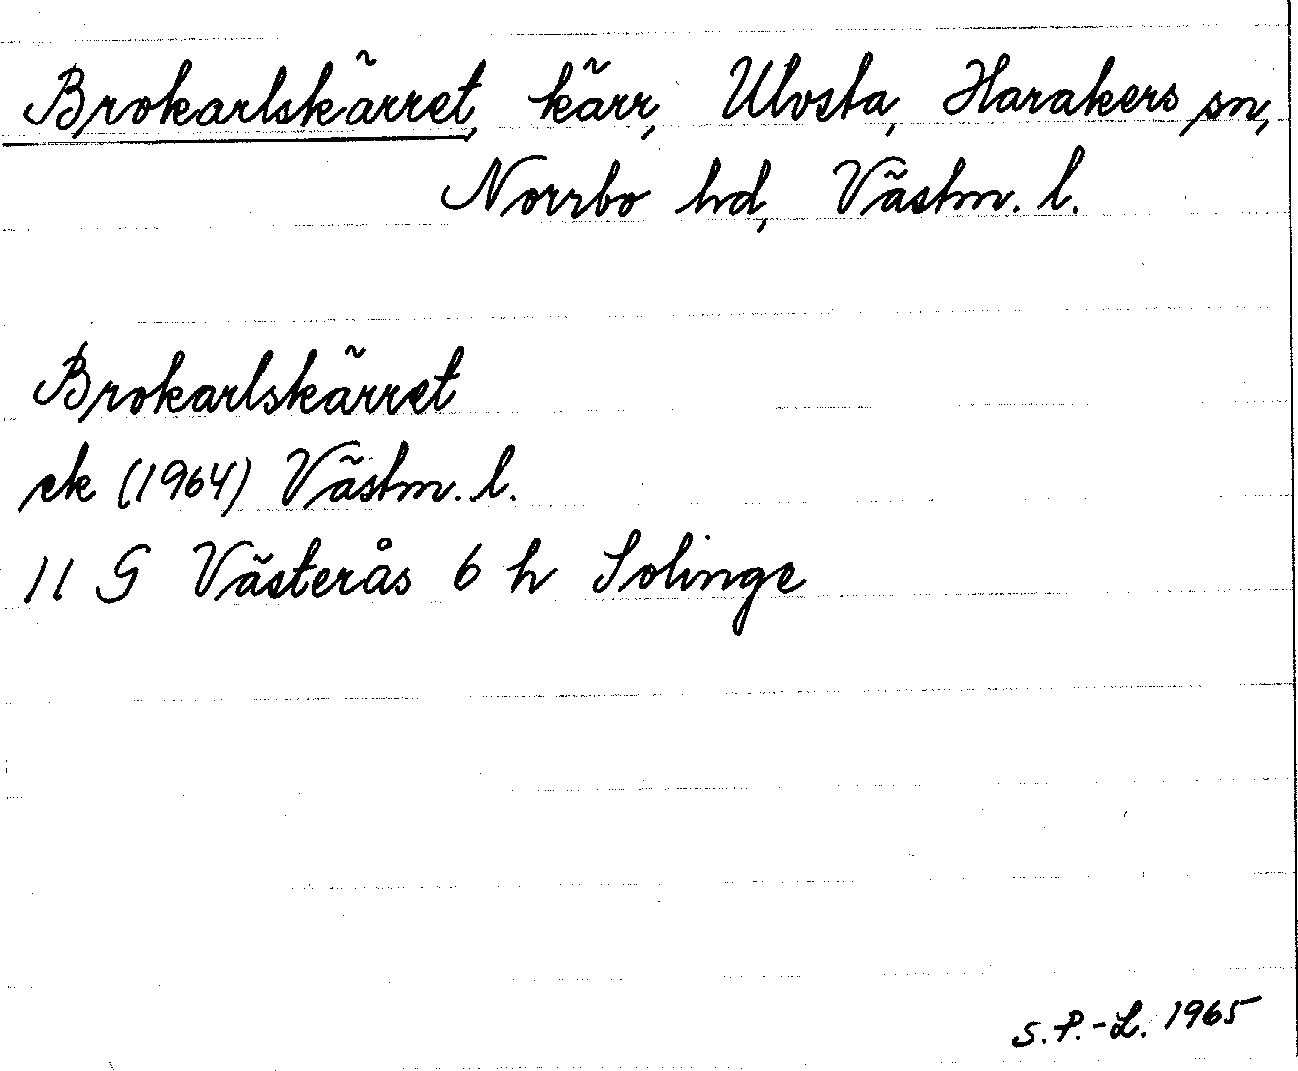 Brokarlskärret, kärr, Ulvsta, Harakers sn,
Norrbo hd, Västm. l.
Brokarlskärret
ek (1964) Västm. l.
11 G Västerås 6 h Solinge
S.P.-L. 1965